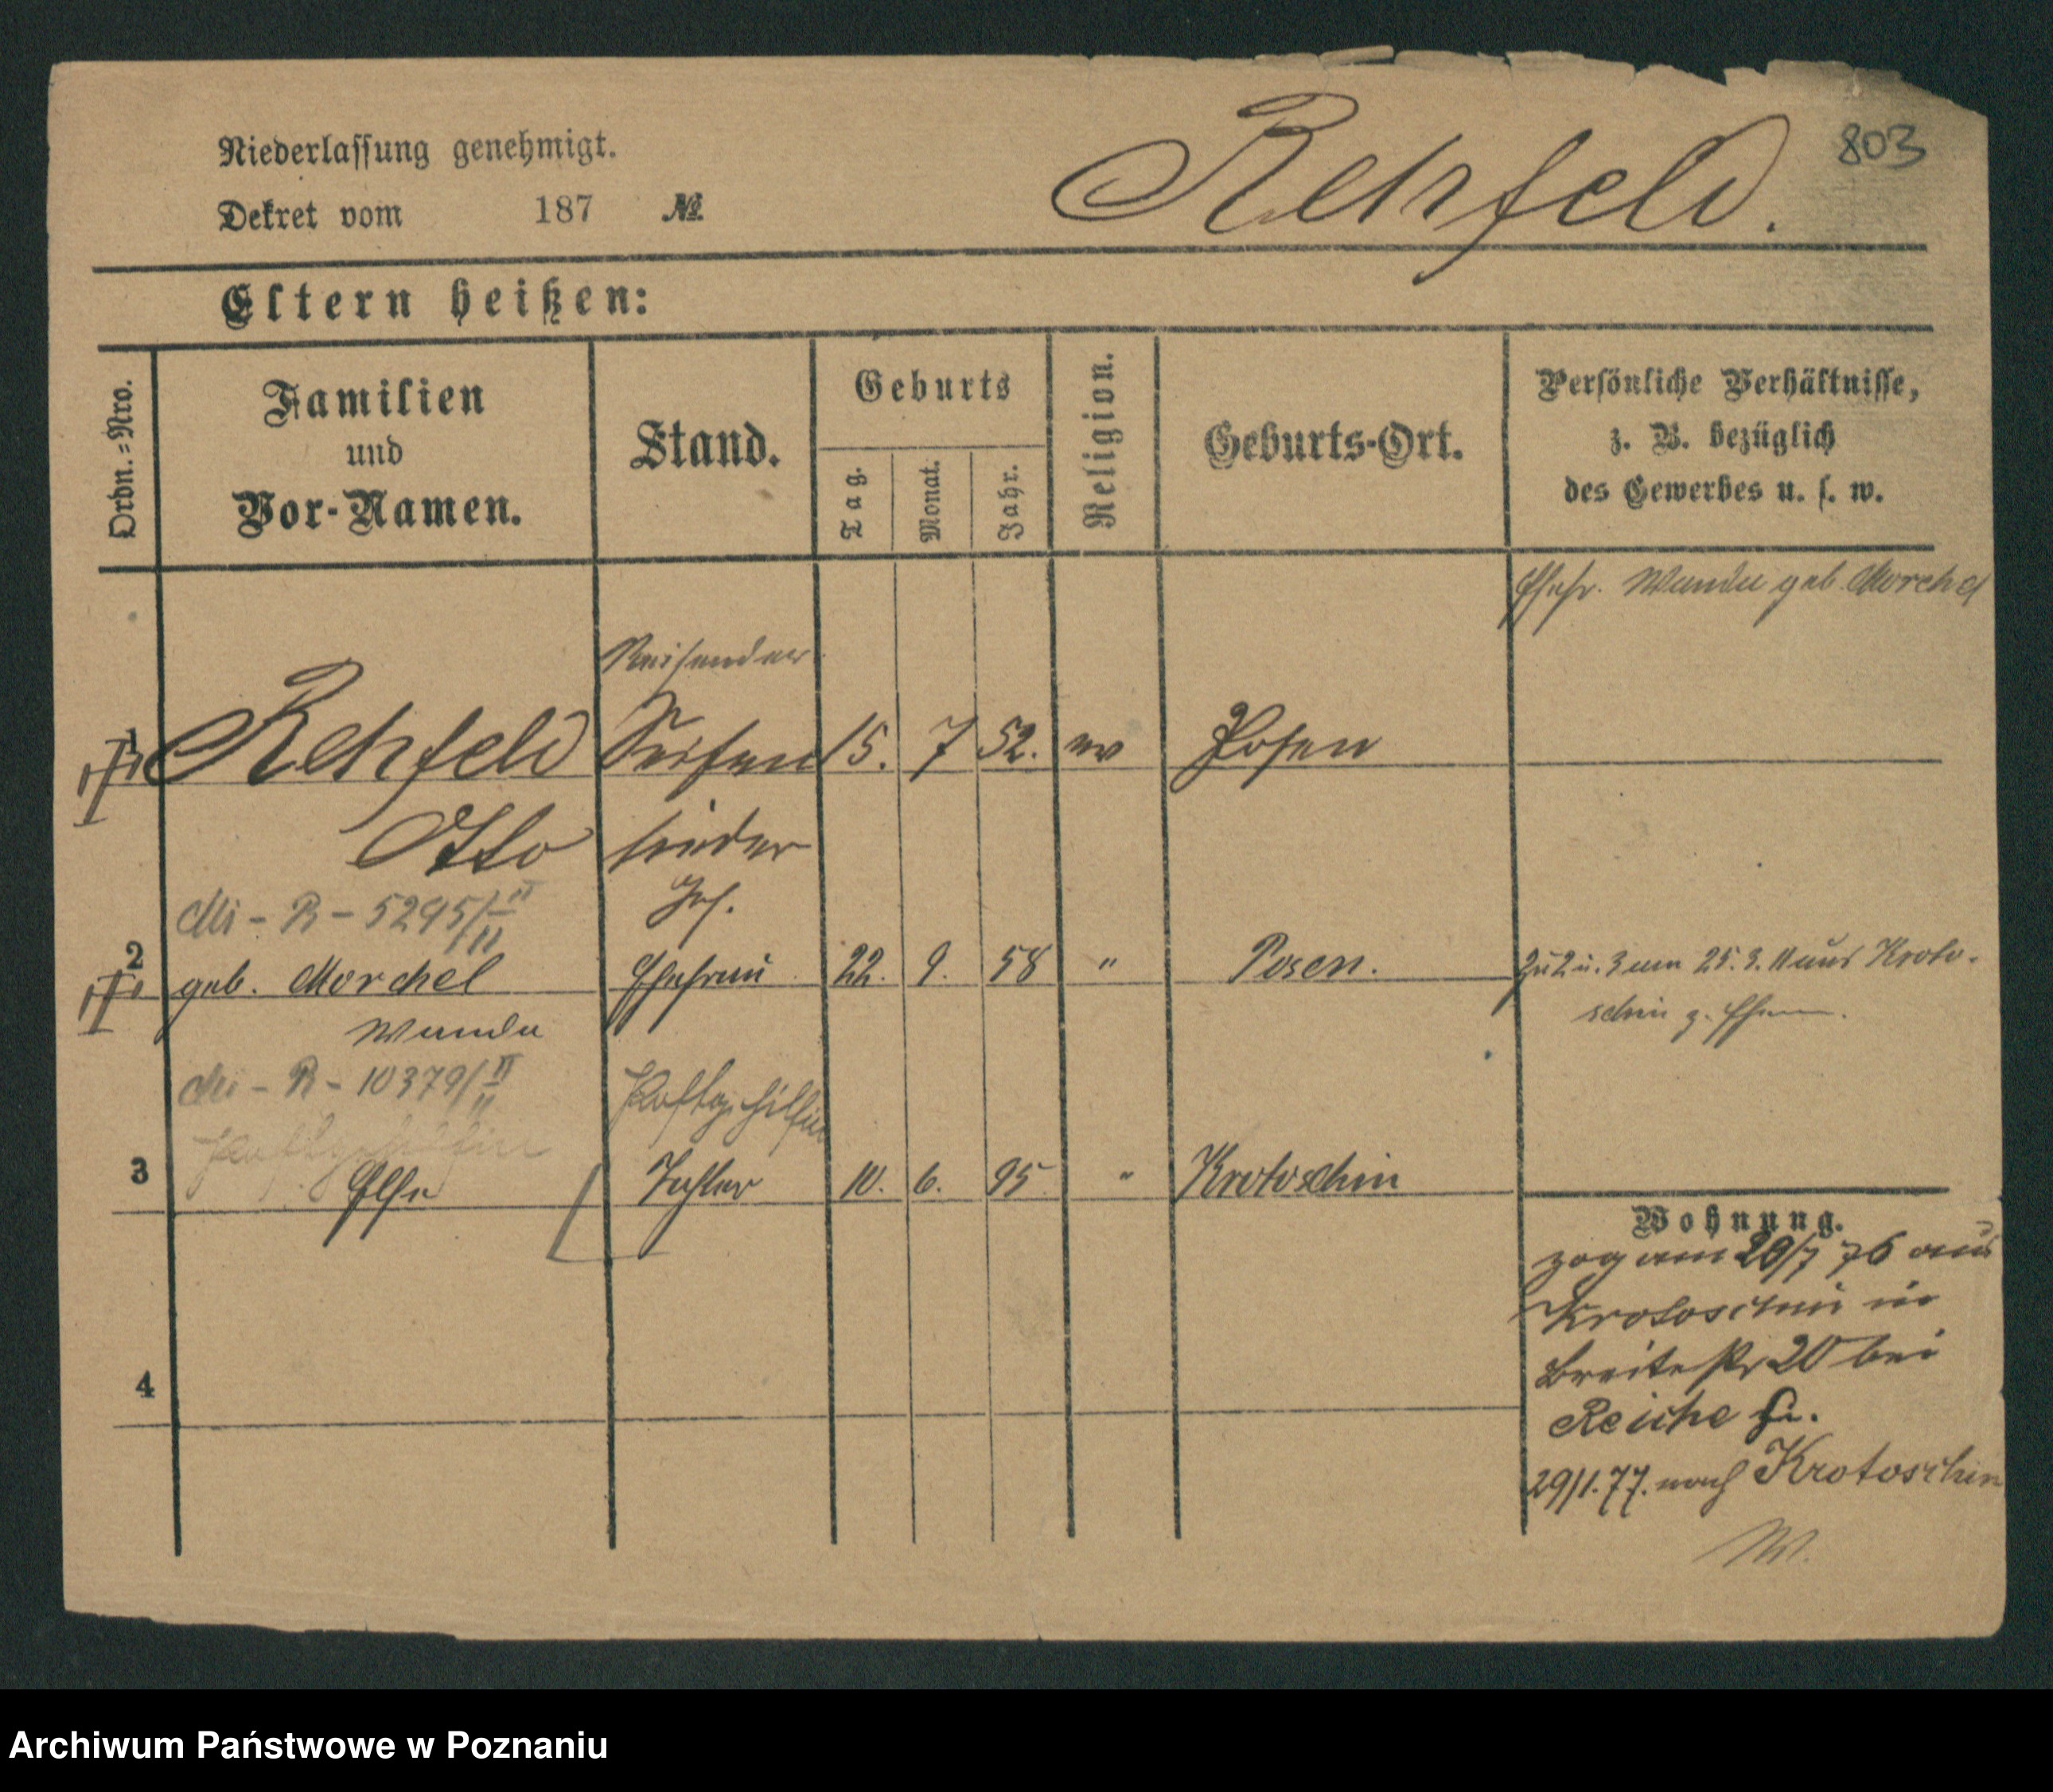 803
Niederlassung genehmigt.
Rehfeld.
Dekret vom 187 №
Eltern heißen:
Ordn.=Nro.
Familien
und
Vor-Namen.
Stand.
Geburts
Tag.
Monat.
Jahr.
Religion.
Geburts-Ort.
Persönliche Verhältnisse,
z. B. bezüglich
des Gewerbes u. s. w.
Ehefr. Wanda geb. Morchel
Reisender
1 Rehfeld Seifen 15. 7 52. ev Posen
Otto sieder
Mi - R - 5295/II Geh.
2 geb. Morchel Ehefrau 22. 9. 58 " Posen. Zu 2 u. 3 am 25.3.11 aus Kroto-
Wanda schin z. Ehem.
Mi - R - 10379/II
Postgehilfin
Postgehilfin
3 Else Tochter 10. 6. 95 " Krotoschin
Wohnung.
zog am 20/7 76 aus
Krotoschin in
Breitestr 20 bei
4
Reiche
29/1.77. nach Krotoschin
W.
Archiwum Państwowe w Poznaniu